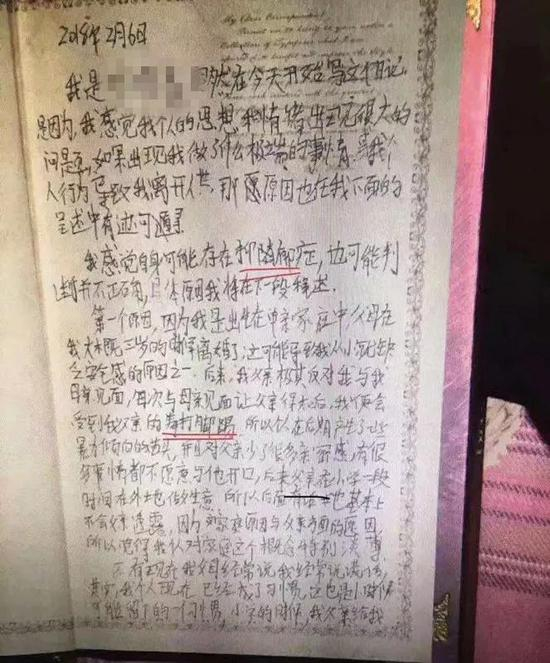 2018年2月6日
My Dear Correspondent
我是 然在今天开始写这个日记
是因为,我感觉我个人的思想和情绪出现很大的
问题,如果出现我做了什么极端的事情,或我个
人行为导致我离开人世,那愿原因也在我下面的
呈述中有迹可遁
我感觉自身可能存在抑隐郁症,也可能判
断书不正确,具体原因我将在下一段释述.
第一个原因,因为我是出生在单亲家庭中,父母在
我大概三岁的时候离婚了,这可能导致我从小就缺
乏安全感的原因之一.后来,我父亲极其反对我与我
母亲见面,每次与母亲见面让父亲得知后,我便会
受到我父亲的毒打脚踢,所以个人在后期产生了一些
暴力倾向的苗头,并且对父亲少了很多亲密感,有很
多事情都不愿意与他开口,后来父亲在小学一段
时间在外地做生意,所以后面 也基本上
不会父亲透露,因为家庭原因与父亲方面的原因,
所以觉得我人对家庭这个概念特别淡薄
还有现在我父母经常说我经常说谎话,
其实,我个人现在已经成了习惯,这也是小时候
可能留下的一个习惯,小学的时候,我父亲给我